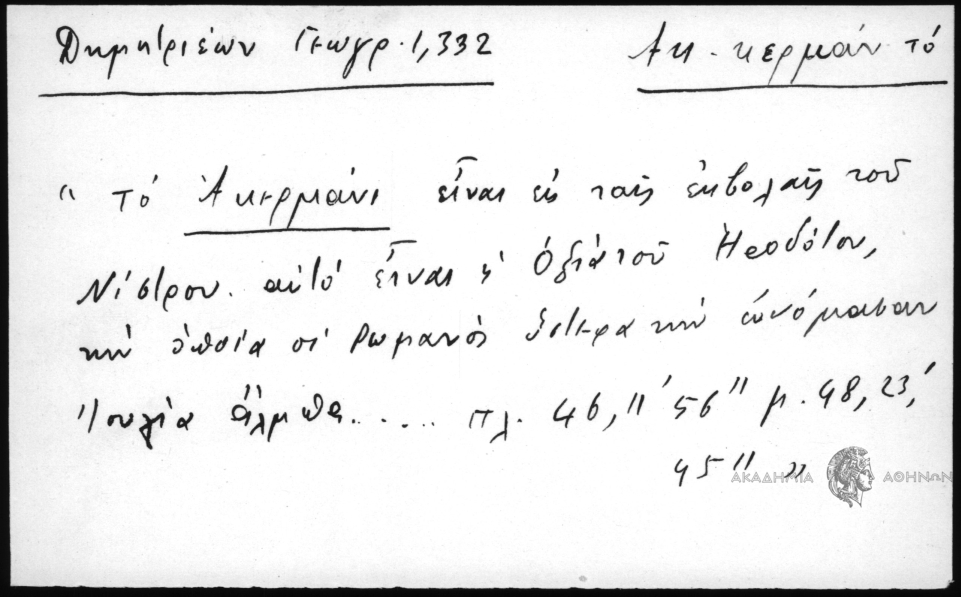 Δημητριέων Γεωγρ. 1,332
Ακ-κερμάν τό
"τό Ἀκερμάνι εἶναι εἰς ταῖς ἐκβολαῖς τοῦ
Νίστρου. αὐτό εἶναι ἡ Ὀξιά τοῦ Ἡροδότου,
τήν ὁποία οἱ Ρωμανοί ὕστερα τήν ὠνόμασαν
Ἰουλία ..... πλ. 46,'' 56'' μ. 48, 23,'
45'' »
ΑΚΑΔΗΜΙΑ ΑΘΗΝΩΝ